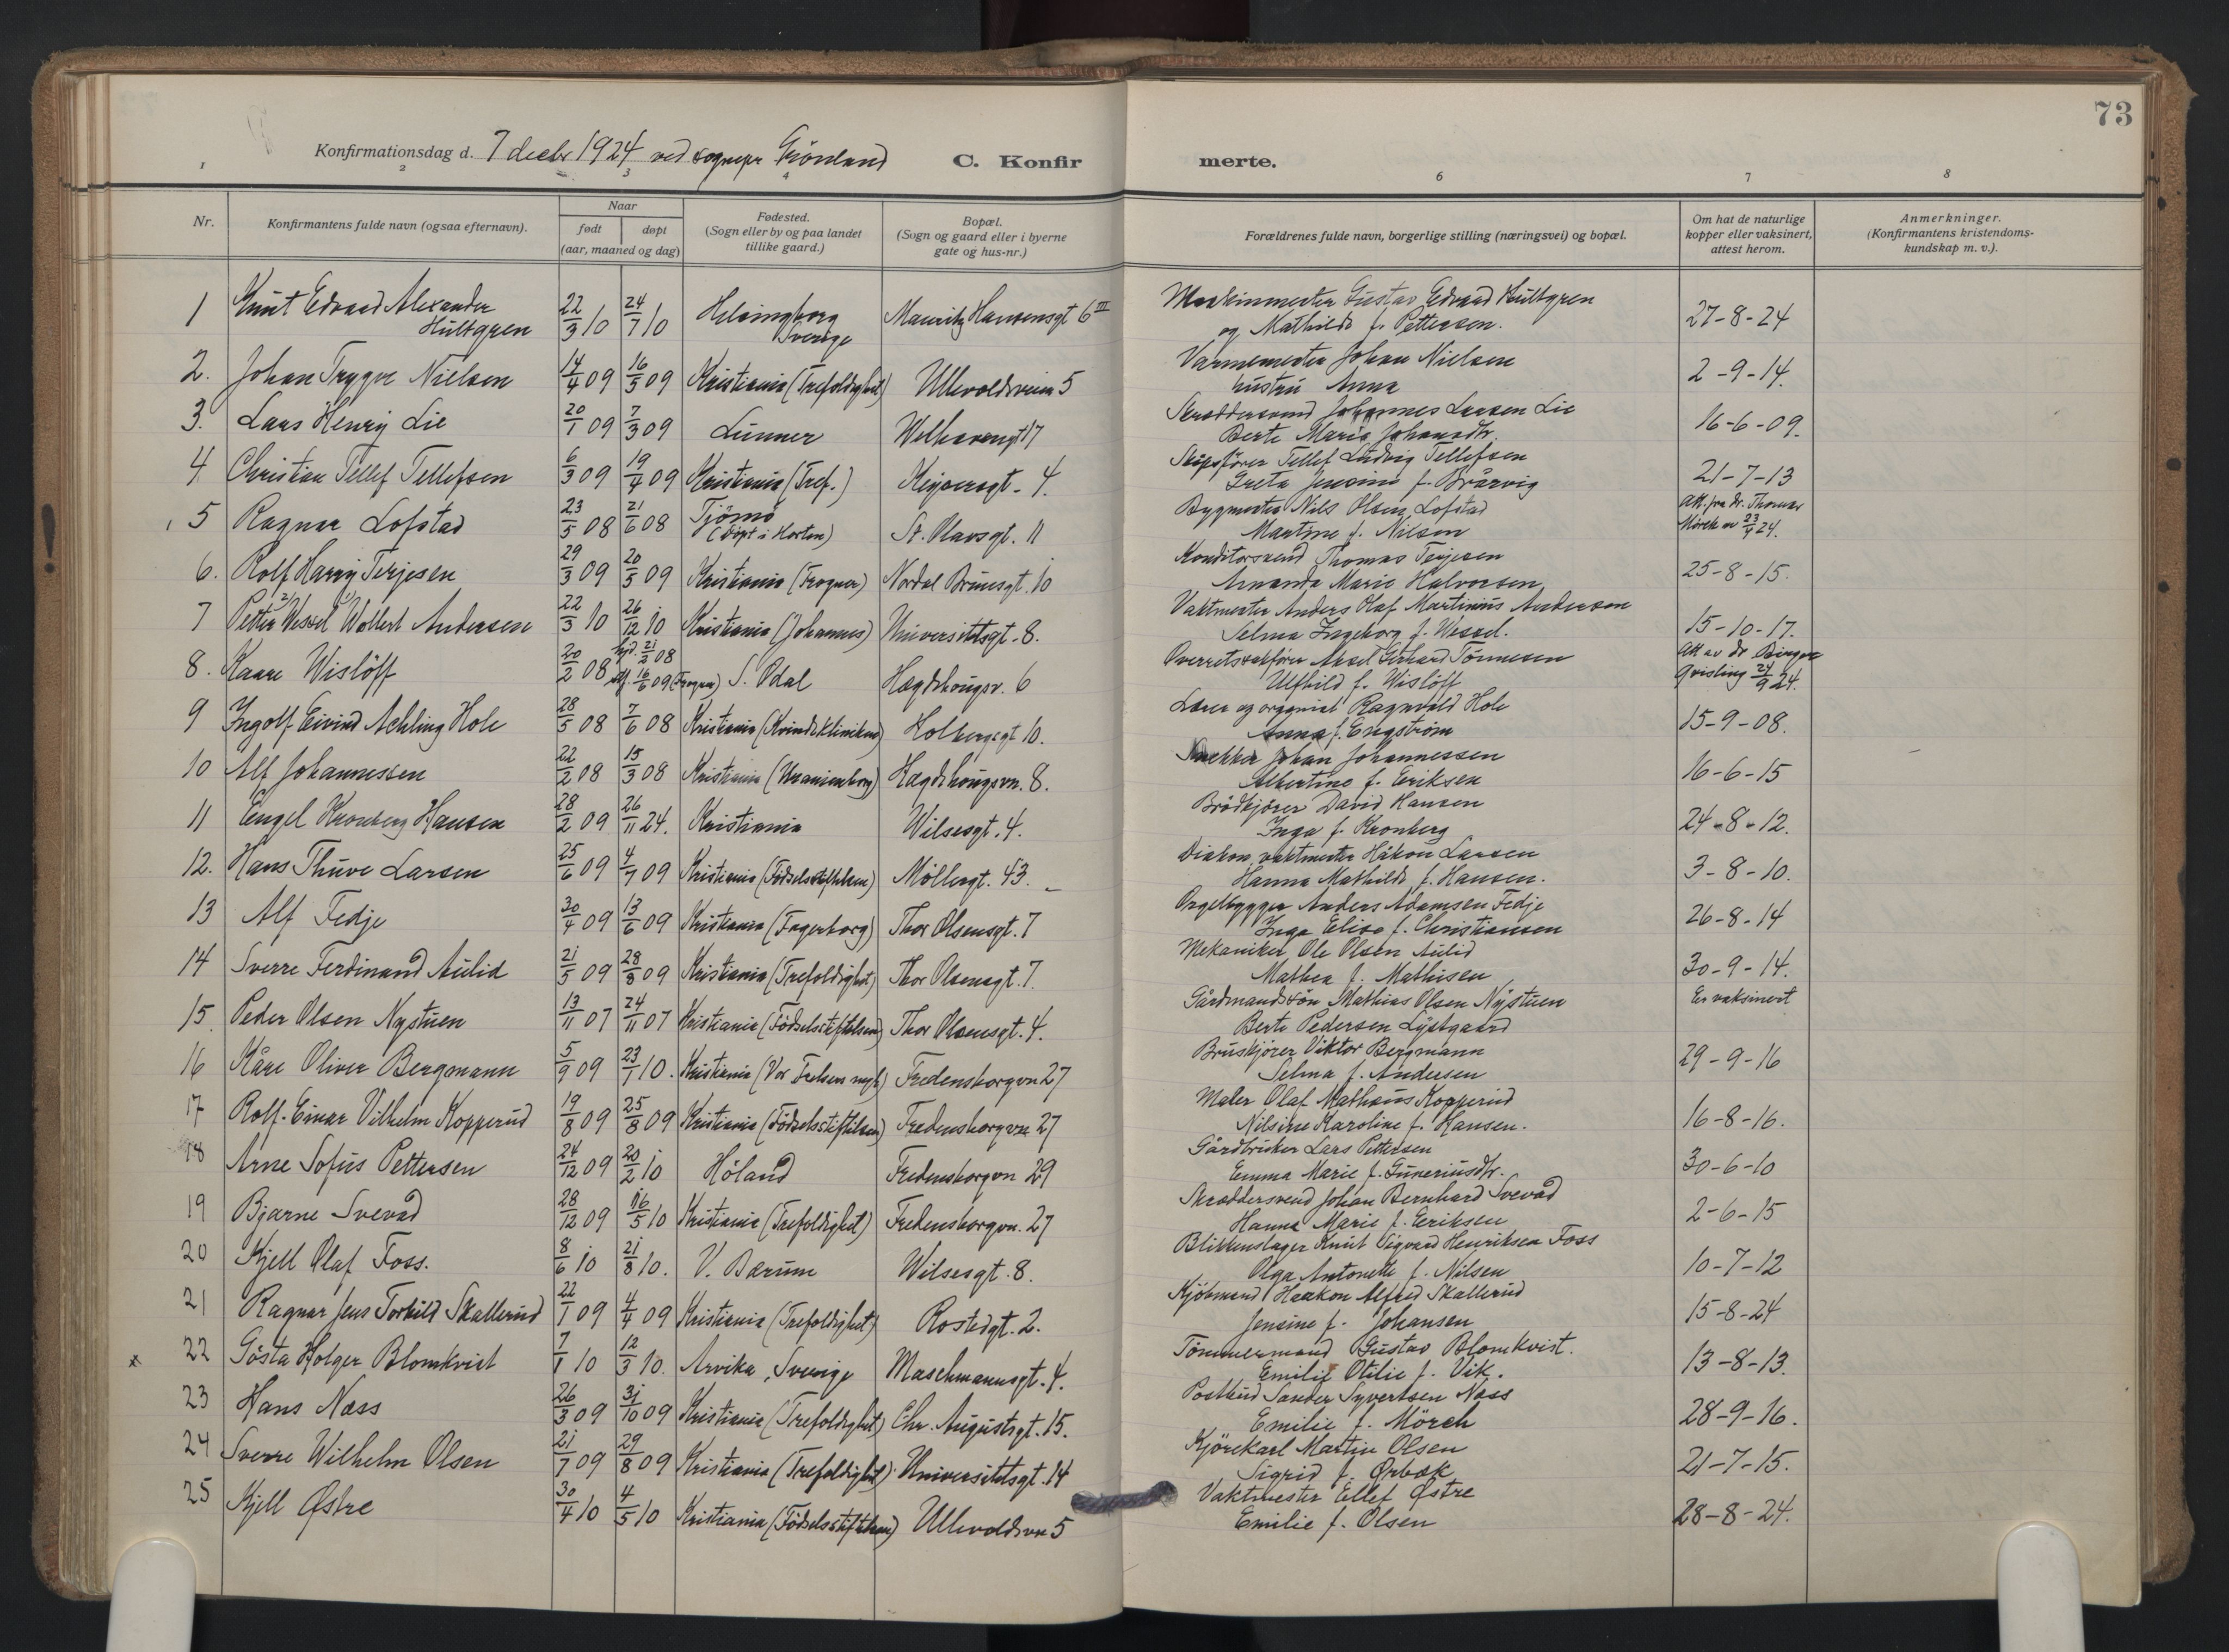 73
Konfirmationsdag d. 7 decbr 1924 ved sognepr Grönland
C. Konfirmerte.
1 2 3 4 6 7 8
Nr. Konfirmantens fulde navn (ogsaa efternavn). Naar født døpt (aar, maaned og dag) Fødested. (Sogn eller by og paa landet tillike gaard.) Bopæl. (Sogn og gaard eller i byerne gate og hus-nr.) Forældrenes fulde navn, borgerlige stilling (næringsvei) og bopæl. Om hat de naturlige kopper eller vaksinert, attest herom. Anmerkninger. (Konfirmantens kristendomskundskap m. v.).
1 Knut Edvard Alexander Hultgren 22/3 10 24/7 10 Helsingborg Sverige Mauritz Hansensgt 6 III Maskinmester Gustav Edvard Hultgren
og Mathilde f. Pettersen. 27-8-24
2. Johan Trygve Nielsen 14/4 09 16/5 09 Kristiania (Trefoldighet) Ullevoldsveien 5 Varmemester Johan Nielsen
hustru Anna 2-9-14.
3. Lars Henry Lie 20/1 09 7/3 09 Lunner Welhavensgt 17 Skræddersvend Johannes Larsen Lie
Berte Marie Johansdtr. 16-6-09.
4. Christian Tellef Tellefsen 6/3 09 19/4 09 Kristiania (Tref.) Keysersgt. 4. Skipsfører Tellef Ludvig Tellefsen
Greta Jensine f. Brårvig 21-7-13
5 Ragnar Lofstad 23/5 08 21/6 08 Tjömö (döpt i Horten) St. Olavsgt. 11 Bygmester Nils Olsen Lofstad
Martine f. Nilsen Att. fra Dr. Thomas Mörck av 23/9 24.
6. Rolf Harry Terjesen 29/3 09 20/5 09 Kristiania (Frogner) Nordal Brunsgt. 10 Konditorsvend Thomas Terjesen
Amanda Marie Halvorsen 25-8-15.
7 Petter Wessel Wollert Andersen 22/3 10 26/12 10 Kristiania (Johannes) Universitetsgt. 8. Vaktmester Anders Olaf Martinius Andersen
Selma Ingeborg f. Wessel. 15-10-17.
8. Kaare Wislöff 20/2 08 hjd. 21/2 08 stf. 16/6 09 (Frogner) S. Odal Hægdehougsv. 6 Overretssakfører Aksel Gerhard Tönnesen
Ulfhild f. Wislöff Att av dr Birger Qvisling 24/9 24.
9 Ingolf Eivind Aehling Hole 28/5 08 7/6 08 Kristiania (Kvindeklinikken) Holbergsgt 10. Lærer og organist Ragnvald Hole
Anna f. Engström 15-9-08.
10 Alf Johannessen 22/2 08 15/3 08 Kristiania (Uranienborg) Hægdehougsvn. 8. Snekker Johan Johannessen
Albertine f. Eriksen 16-6-15
11 Engel Kronberg Hansen 28/2 09 26/11 24. Kristiania Wilsesgt. 4. Brödkjörer David Hansen
Inga f. Kronberg 24-8-12.
12. Hans Thuve Larsen 25/6 09 4/7 09 Kristiania (Födselsstiftelsen) Möllergt. 43. Diakon, vaktmester Håkon Larsen
Hanna Mathilde f. Hansen. 3-8-10.
13 Alf Fedje 30/4 09 13/6 09 Kristiania (Fagerborg) Thor Olsensgt. 7 Orgelbygger Anders Adamsen Fedje
Inga Elise f. Christiansen 26-8-14
14 Sverre Ferdinand Aulid 21/5 09 28/8 09 Kristiania (Trefoldighet) Thor Olsensgt. 7. Mekaniker Ole Olsen Aulid
Mathea f. Mathisen 30-9-14.
15. Peder Olsen Nystuen 13/11 07 24/11 07 Kristiania (Födselsstiftelsen) Thor Olsensgt. 4. Gårdmandssön Mathias Olsen Nystuen
Berte Pedersen Lystgaard Er vaksinert
16 Kåre Oliver Bergmann 5/9 09 23/1 10. Kristiania (Vor Frelsers mgh) Fredensborgvn 27 Bruskjörer Viktor Bergmann
Selma f. Andersen 29-9-16
17 Rolf-Einar Vilhelm Kopperud 19/8 09 25/8 09 Kristiania (Födselsstiftelsen) Fredensborgvn 27 Maler Olaf Mathæus Kopperud
Nilsine Karoline f. Hansen. 16-8-16.
18 Arne Sofus Pettersen 24/12 09 20/2 10 Höland Fredensborgvn 29 Gårdbruker Lars Pettersen
Emma Marie f. Guneriusdtr. 30-6-10
19 Bjarne Svevad 28/12 09 16/5 10 Kristiania (Trefoldighet) Fredensborgvn. 27 Skræddersvend Johan Bernhard Svevad
Hanna Marie f. Eriksen 2-6-15
20 Kjell Olaf Foss. 8/6 10 21/8 10. V. Bærum Wilsesgt. 8. Blikkenslager Knut Sigvard Henriksen Foss
Olga Antonette f. Nilsen 10-7-12
21 Ragnar Jens Torkild Skallerud 22/1 09 4/4 09 Kristiania (Trefoldighet) Rostedgt. 2. Kjöbmand Haakon Alfred Skallerud
Jensine f. Johansen 15-8-24
x 22 Gösta Holger Blomkvist 7/1 10 12/3 10. Arvika, Sverige Maschmannsgt. 4. Tömmermand Gustav Blomkvist.
Emilie Otilie f. Vik. 13-8-13.
23 Hans Næss 26/3 09 31/10 09 Kristiania (Trefoldighet) Chr. Augustsgt. 15. Postbud Sander Syvertsen Næss
Emilie f. Mörch 28-9-16.
24 Sverre Wilhelm Olsen 21/7 09 29/8 09 Kristiania (Trefoldighet) Universitetsgt. 14 Kjörekarl Martin Olsen
Sigrid f. Ørbæk 21-7-15.
25 Kjell Østre 30/4 10 4/5 10 Kristiania (Födselsstiftelsen) Ullevoldsvn 5 Vaktmester Ellef Østre
Emilie f. Olsen 28-8-24.